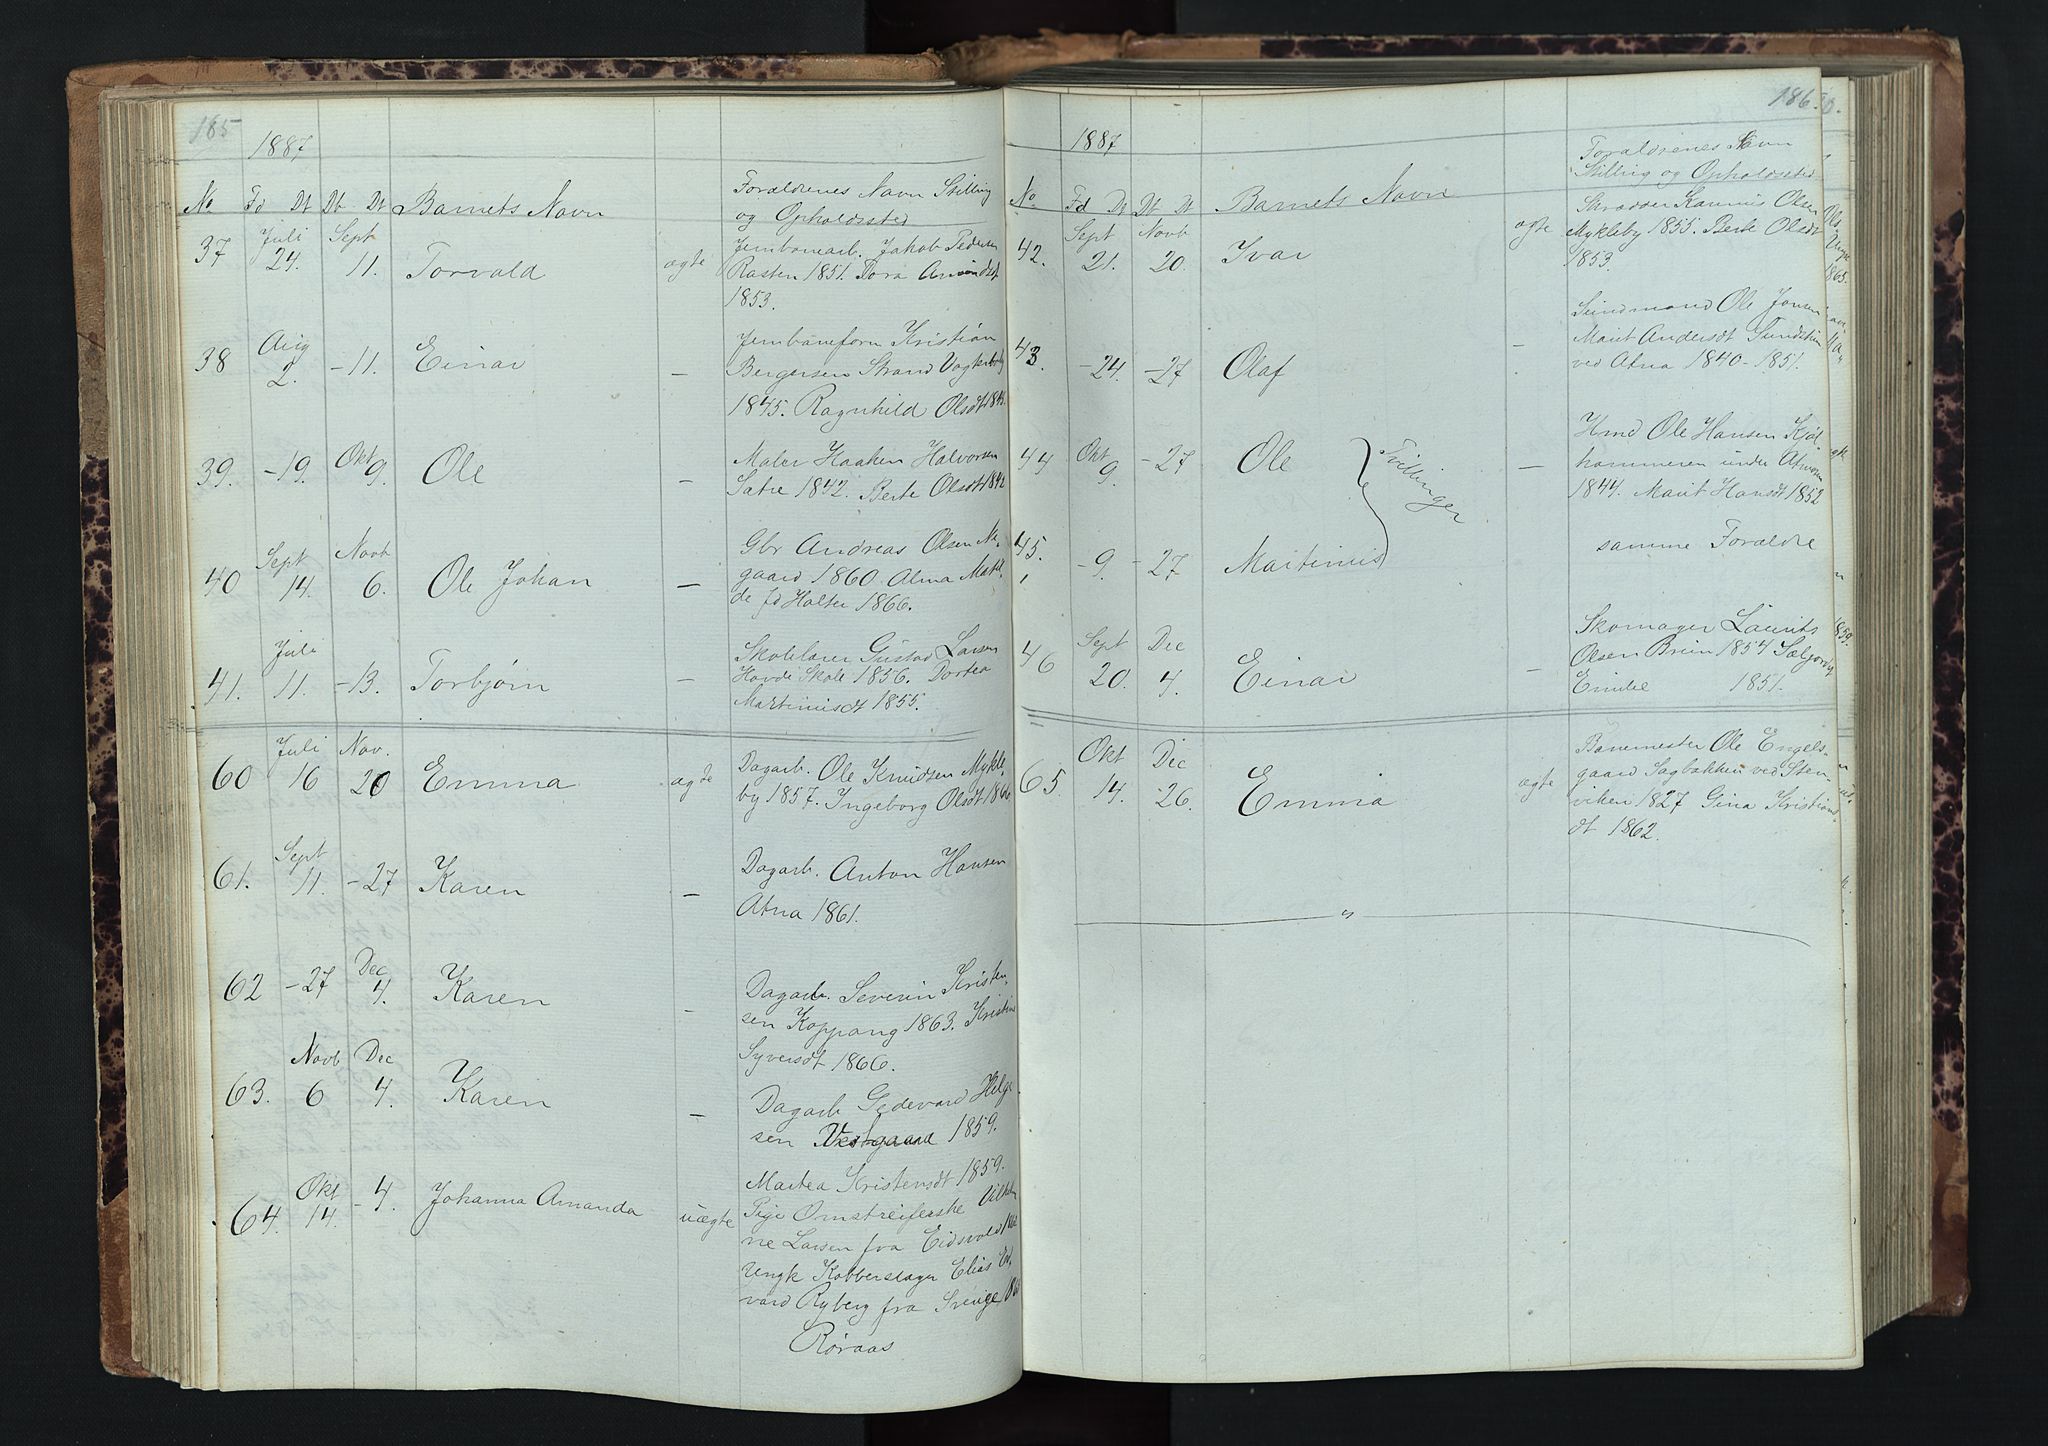 165
1887
No Fd Dt Dt Dt Barnets Navn Forældrenes Navn Stilling
og Opholdssted
37 Juli 24. Sept 11. Torvald ægte Jernbanearb. Jakob Pedersen
Rasten 1851. Tora
1853.
38 Aug 2. -11. Einar - Jernbaneform Kristian
Bergersen Strand
1845. Ragnhild Olsdt
39. -19. Okt 9. Ole - Maler Haaken Halvorsen
Sætre 1842. Berte Olsdt 1842
40 Sept 14. Novb 6. Ole Johan - Gbr Andreas Olsen Ne-
gaard 1860. Alma Matil-
de fd Halter 1866.
41. Juli 11. -13. Torbjørn - Skolelærer Gustav Larsen
Hovde Skole 1856. Dortea
Martinusdt 1855.
60 Juli 16 Nov. 20 Emma ægte Dagarb. Ole Knudsen Mykle-
by 1857. Ingeborg Olsdt 1866
61. Sept 11. -27 Karen - Dagarb. Anton Hansen
Atna 1861.
62 -27 Dec 4. Karen - Dagarb. Severin Kristen-
sen Koppang 1863. Kristine
Syversdt 1866.
63. Novb 6 Dec 4. Karen - Dagarb Gedevard Helge
sen Vestgaard 1859.
Martea Kristensdt 1859.
64. Okt 14. -4. Johanna Amanda uægte Pige Omstreiferske Vilhelmi
ne Larsen fra Eidsvold
Ungk Kobberslager Elias Ed-
vard Ryberg fra Sverige
Røraas
186
1887
No Fd Dt Dt Dt Barnets Navn Forældrenes Navn
Stilling og Opholdssted
42. Sept 21. Novb 20. Ivar ægte Skrædder Olsen
Mykleby 1855. Berte Olsdt
1853.
43. -24. -27 Olaf - Sundmand Ole Jonsen
Marit Andersdt Sundstuen
ved Atna 1840-1851.
44 Okt 9. -27 Ole Tvillinger - Hmd Ole Hansen Kjøl-
hammeren under
1844. Marit Hansdt 1852
45. -9. -27 Martinus samme Forældre
46 Sept 20. Dec 4. Einar - Skomager Laurits
Olsen Brun 1854
Emilie 1851.
65. Okt 14. Dec 26. Emma ægte Banemester Ole Engels-
gaard Sagbakken ved Sten-
viken 1827 Gina Kristians-
dt 1862.